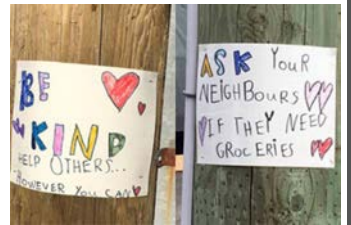 BE
KIND
HELP OTHERS...
HOWEVER YOU CAN
ASK YOUR
NEIGHBOURS
IF THEY NEED
GROCERIES